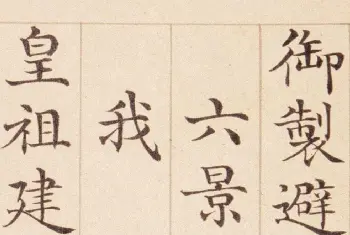 御製避
六景
我
皇祖建